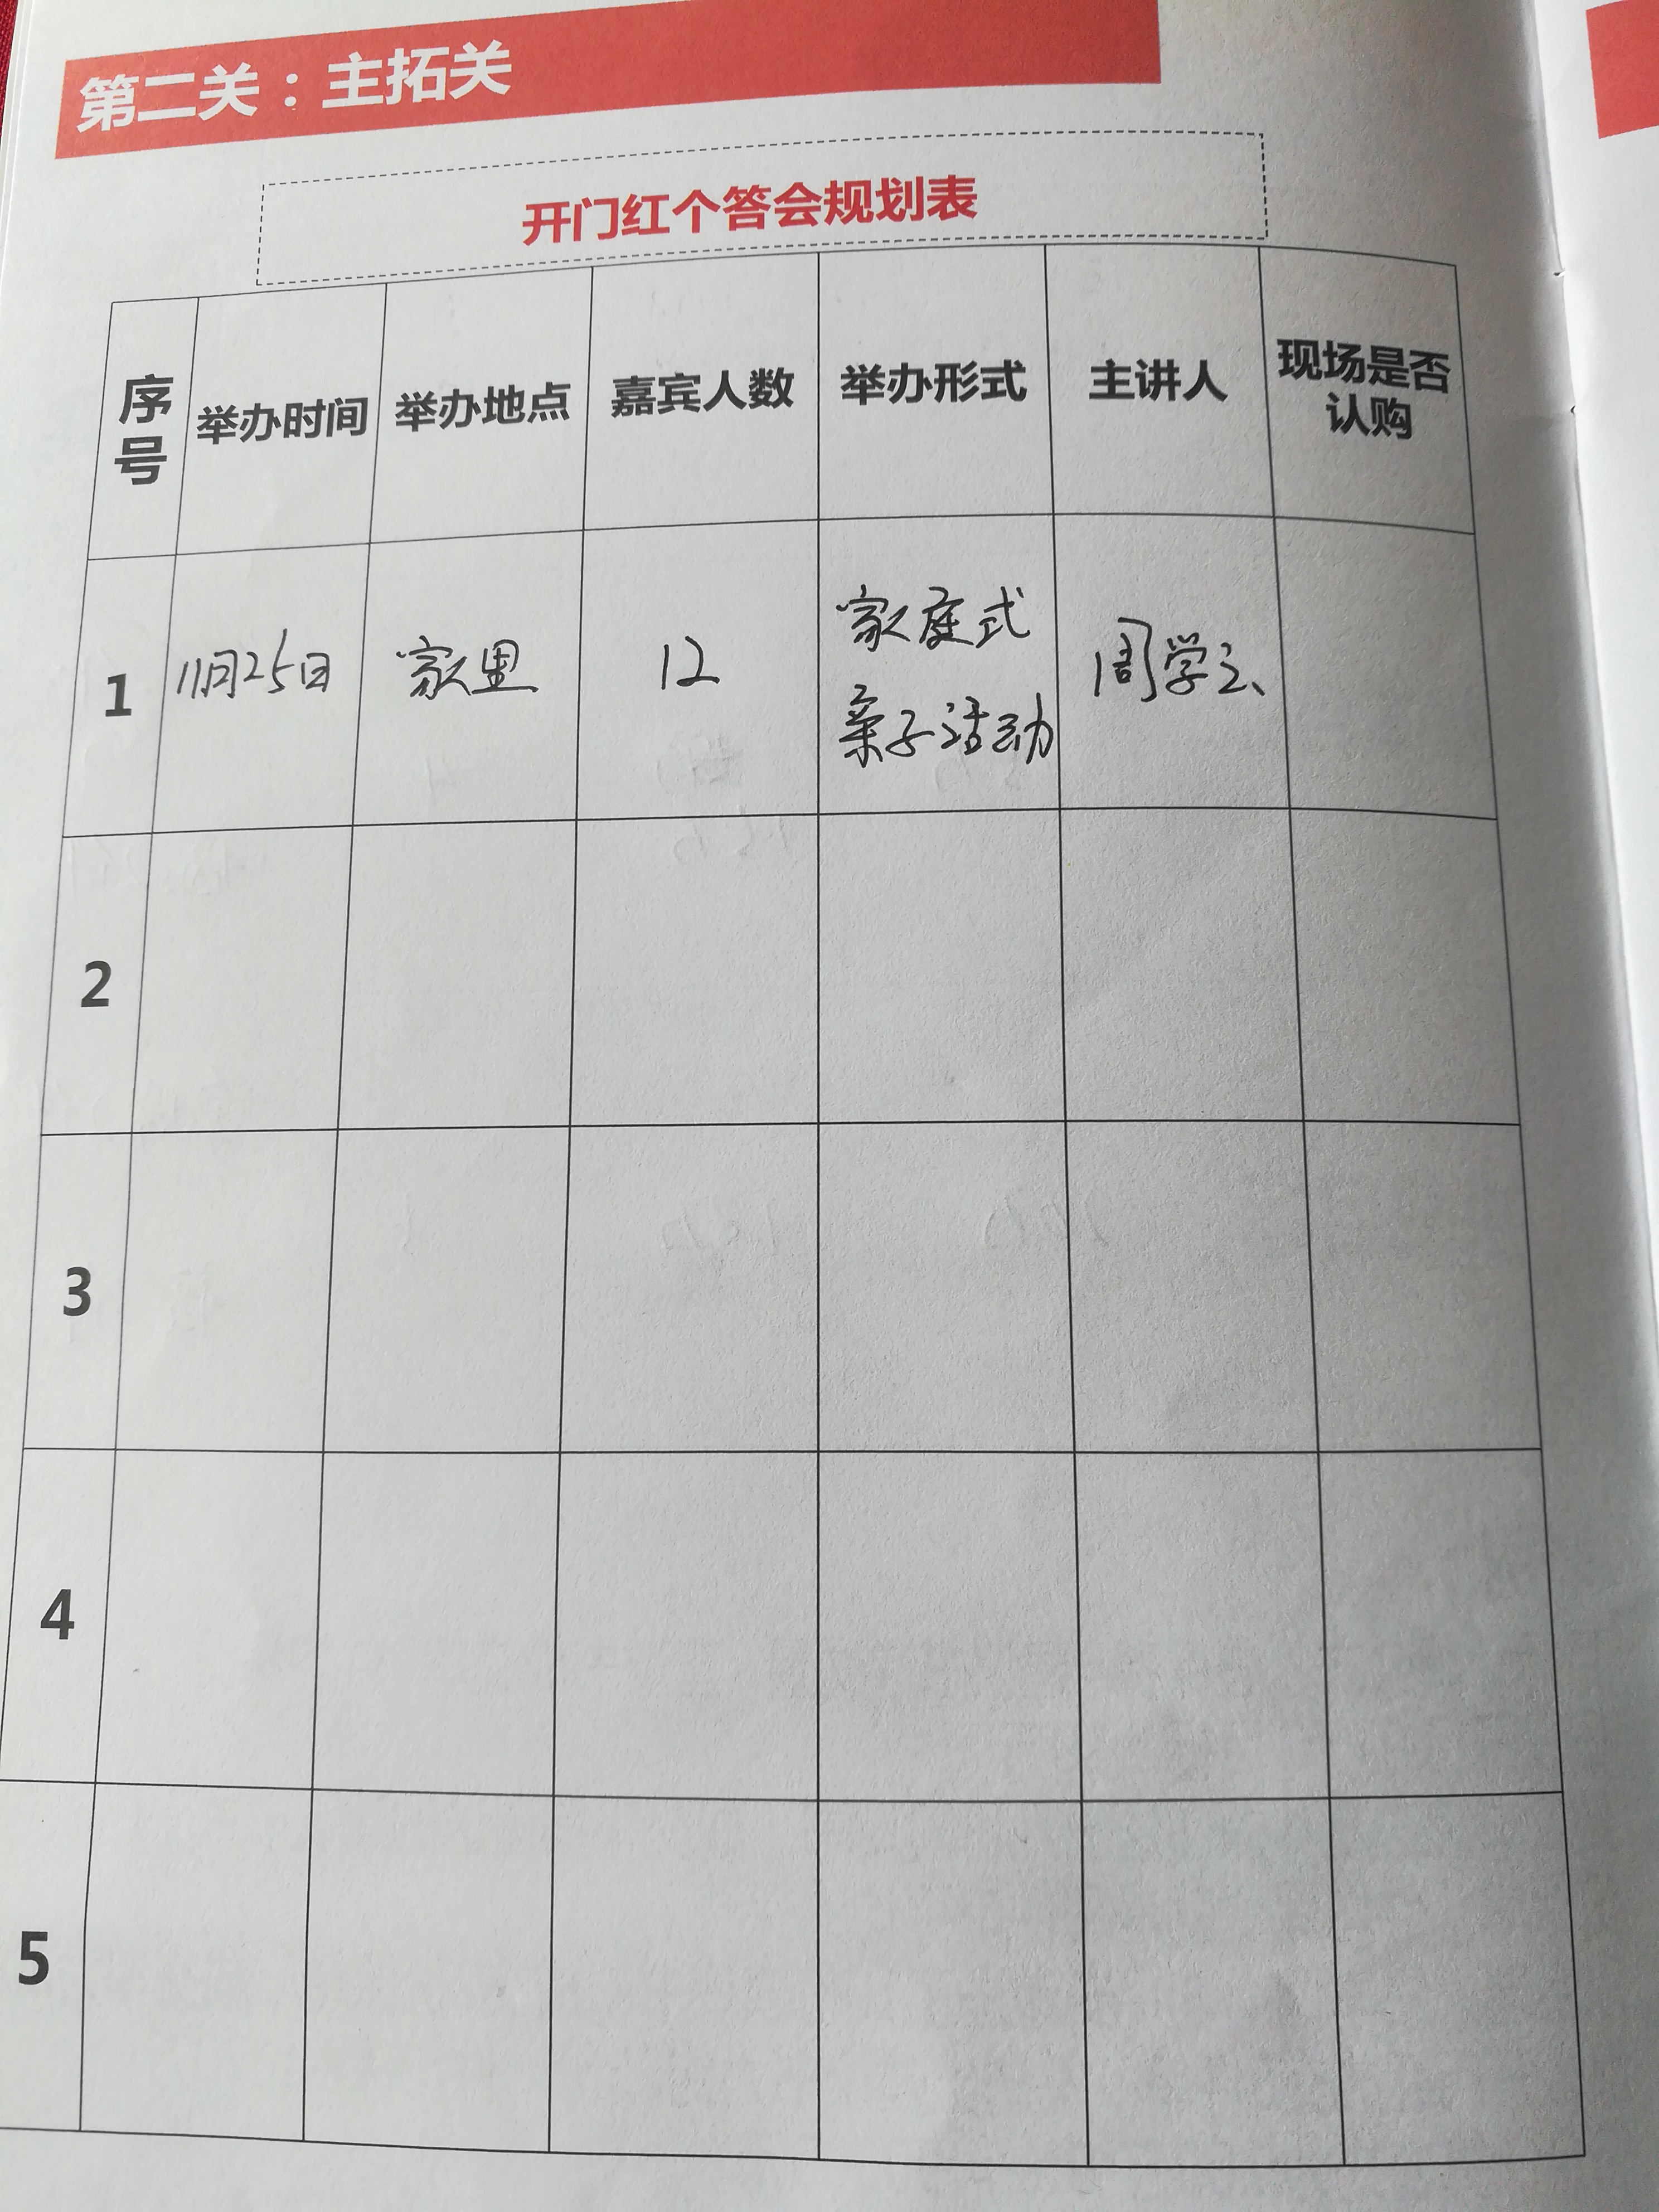 第二关：主拓关
开门红个答会规划表
序号 举办时间 举办地点 嘉宾人数 举办形式 主讲人 现场是否认购
1 11月25日 家里 12 家庭式
亲子活动 周学云
2
3
4
5